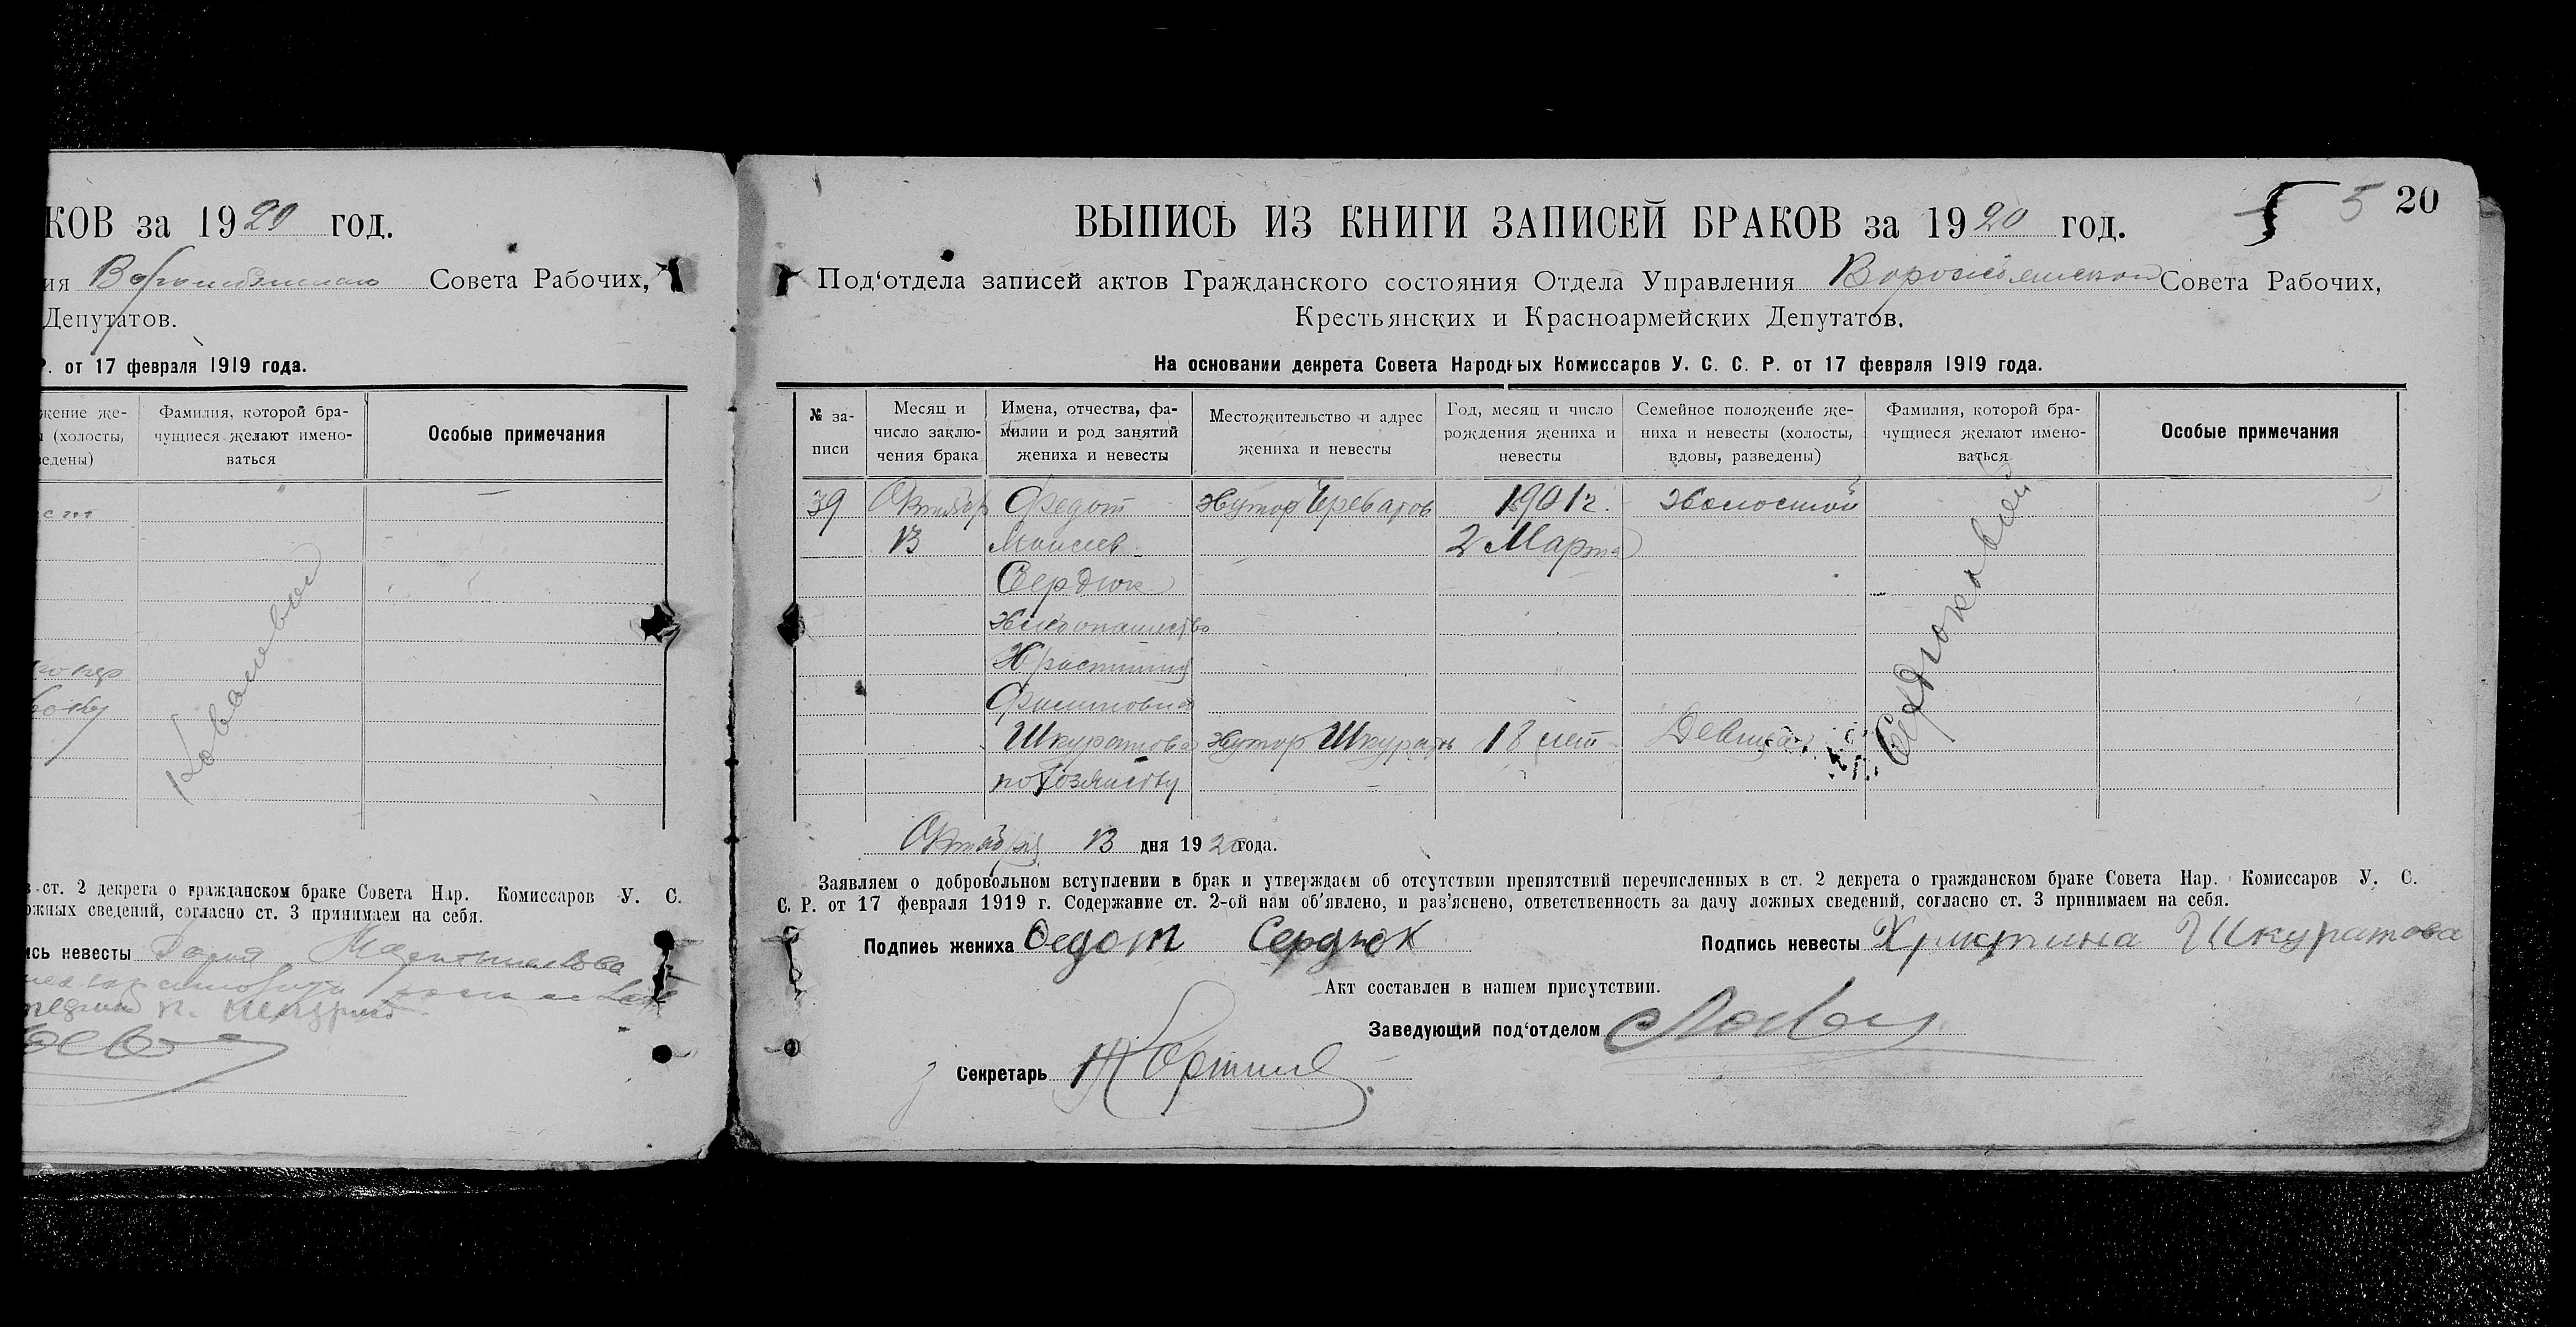 КОВ за 1920 год.
ия Совета Рабочих,
Депутатов.
Р. от 17 февраля 1919 года.
жение же-
(холосты,
едены)
Фамилия, которой бра-
чущиеся желают имено-
ваться
Особые примечания
в ст. 2 декрета о гражданском браке Совета Нар. Комиссаров У. С.
ожных сведений, согласно ст. 3 принимаем на себя.
ись невесты
20
5
ВЫПИСЬ ИЗ КНИГИ ЗАПИСЕЙ БРАКОВ за 1920 год.
Под‘отдела записей актов Гражданского состояния Отдела Управления Совета Рабочих,
Крестьянских и Красноармейских Депутатов.
На основании декрета Совета Народных Комиссаров У. С. С. Р. от 17 февраля 1919 года.
№ за-
писи
Месяц и
число заклю-
чения брака
Имена, отчества, фа-
милии и род занятий
жениха и невесты
Местожительство и адрес
жениха и невесты
Год, месяц и число
рождения жениха и
невесты
Семейное положение же-
ниха и невесты (холосты,
вдовы, разведены)
Фамилия, которой бра-
чущиеся желают имено-
ваться
Особые примечания
39 Октябр Федот Хутор Череватов 1901 г. Холостой
13 Моисеев 2 Марта
Сердюк
Хлебопашество
Христиния
Филиповна
Шкуратова Хутор 18 лет Девица
по Хозяйству
Сердюковы
Октября 13 дня 1920 года.
Заявляем о добровольном вступлении в брак и утверждаем об отсутствии препятствий перечисленных в ст. 2 декрета о гражданском браке Совета Нар. Комиссаров У. С.
С. Р. от 17 февраля 1919 г. Содержание ст. 2-ой нам об'явлено, и раз'яснено, ответственность за дачу ложных сведений, согласно ст. 3 принимаем на себя.
Подпись жениха Федот Сердюк Подпись невесты Христина Шкуратова
Акт составлен в нашем присутствии.
Заведующий под‘отделом
Секретарь